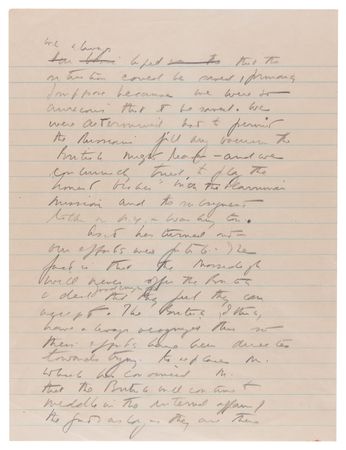 we always
hoped that the
situation could be saved, primarily
I suppose because we were so
anxious that it be saved. We
were determined not to permit
the Russians fill any vacuum the
British might leave – and we
continually tried to play the
honest broker with the Iranian
mission and the subsequent
talks in Washington.
As it has turned out –
our efforts were futile. The
fact is that the Mossadegh
will never offer the British
a deal that they feel they can
accept. The British I think,
have always recognized this so
their efforts have been directed
towards trying to replace M.
which has convinced M.
that the British will continue to
meddle in the internal affairs of
the country as long as they are there